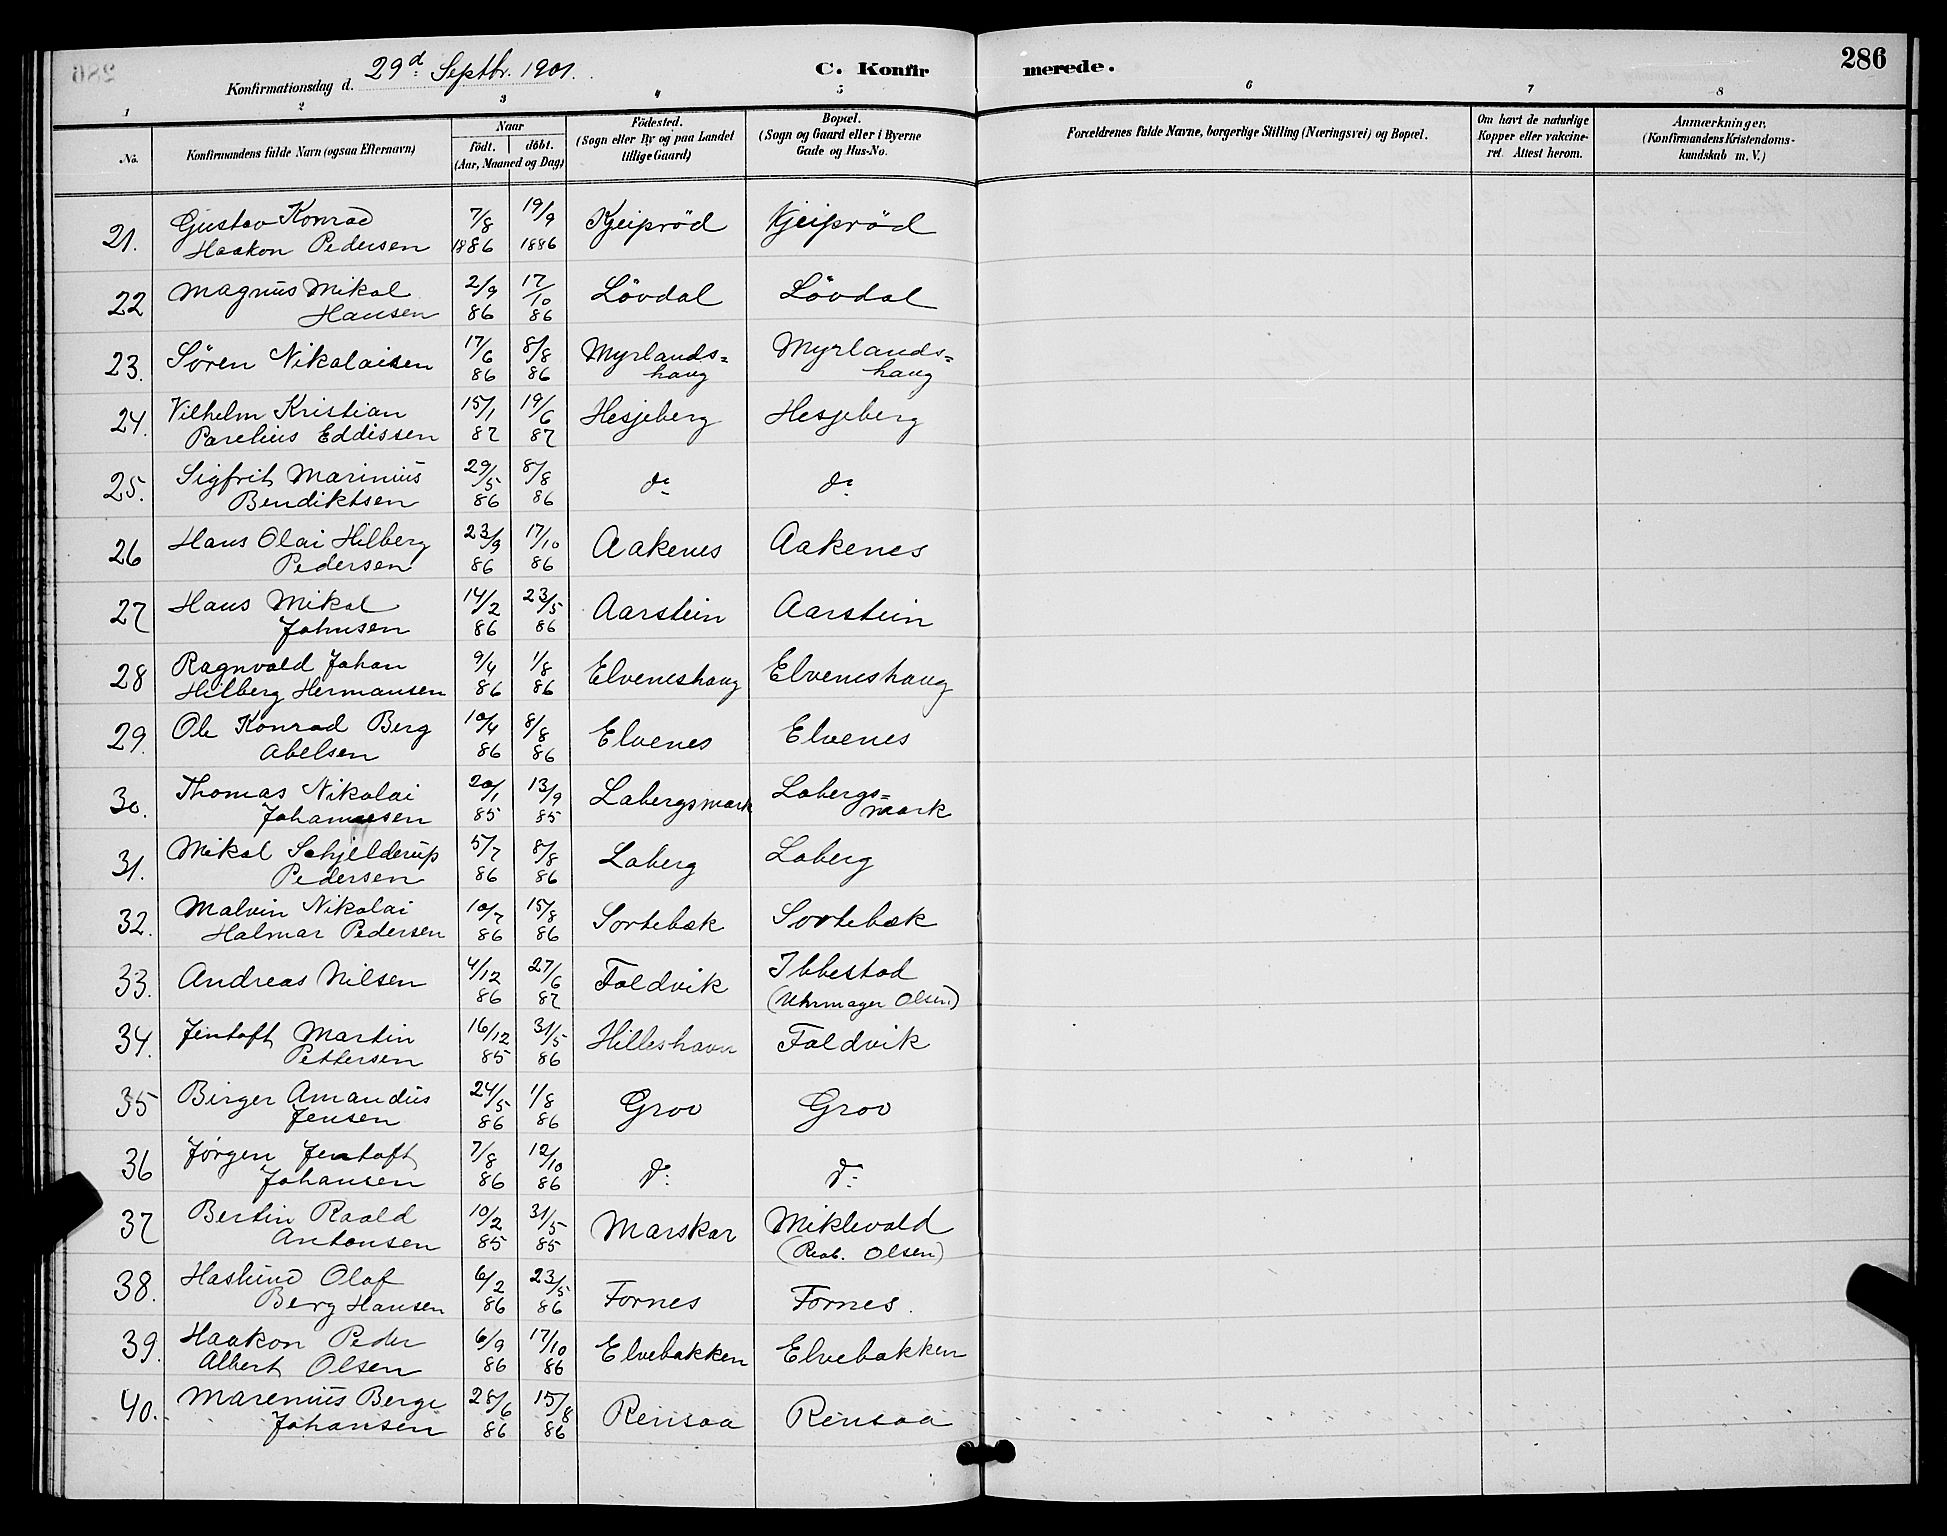 286
Konfirmationsdag d. 29d: Septbr. 1901.
C. Konfirmerede.
1 2 3 4 5 6 7 8
No.
Konfirmandens fulde Navn (ogsaa Efternavn)
Naar
födt. döbt.
(Aar, Maaned og Dag)
Födested.
(Sogn eller By og paa Landet
tillige Gaard)
Bopæl.
(Sogn og Gaard eller i Byerne
Gade og Hus-No.
Forældrenes fulde Navne, borgerlige Stilling (Næringsvei) og Bopæl.
Om havt de naturlige
Kopper eller vakcine-
ret. Attest herom.
Anmærkninger,
(Konfirmandens Kristendoms-
kundskab m. V.)
21. Gustav Konrad 7/8 19/9 Kjeipröd Kjeipröd
Haakon Pedersen 1886 1886
22 Magnus Mikal 2/9 17/10 Lövdal Lövdal
Hansen 86 86
23. Sören Nikolaisen 17/6 8/8 Myrlands= Myrlands=
86 86 haug haug
24. Vilhelm Kristian 15/1 19/6 Hesjeberg Hesjeberg
Parelius Eddissen 87 87
25. Sigfrit Marinius 29/5 8/8 do do
Bendiktsen 86 86
26 Hans Olai Hilberg 23/9 17/10 Aakenes Aakenes
Pedersen 86 86
27 Hans Mikal 14/2 23/5 Aarstein Aarstein
Johnsen 86 86
28 Ragnvald Johan 9/4 1/8 Elveneshaug Elveneshaug
Hilberg Hermansen 86 86
29. Ole Konrad Berg 10/4 8/8 Elvenes Elvenes
Abelsen 86 86
30. Thomas Nikolai 20/1 13/9 Labergsmark Labergs=
Johannesen 85 85 mark
31. Mikal Schjelderup 5/7 8/8 Laberg Laberg
Pedersen 86 86
32. Malvin Nikolai 10/7 15/8 Sortebæk Sortebæk
Halmar Pedersen 86 86
33. Andreas Nilsen 4/12 27/6 Foldvik Ibbestad
86 87 (Uhrmager Olsen)
34. Jentoft Martin 16/12 31/5 Hilleshavn Foldvik
Pettersen 85 86
35 Birger Amandus 24/5 1/8 Grov Grov
Jensen 86 86
36 Jørgen Jentoft 7/8 12/10 do do
Johansen 86 86
37 Bertin Roald 10/2 31/5 Marskar Miklevold
Antonsen 85 85 (Olsen)
38. Haslund Olaf 6/2 23/5 Fornes Fornes.
Berg Hansen 86 86
39. Haakon Peder 6/9 17/10 Elvebakken Elvebakken
Albert Olsen 86 86
40. Marenius Berge 28/6 15/8 Rensaa Rensaa
Johansen 86 86